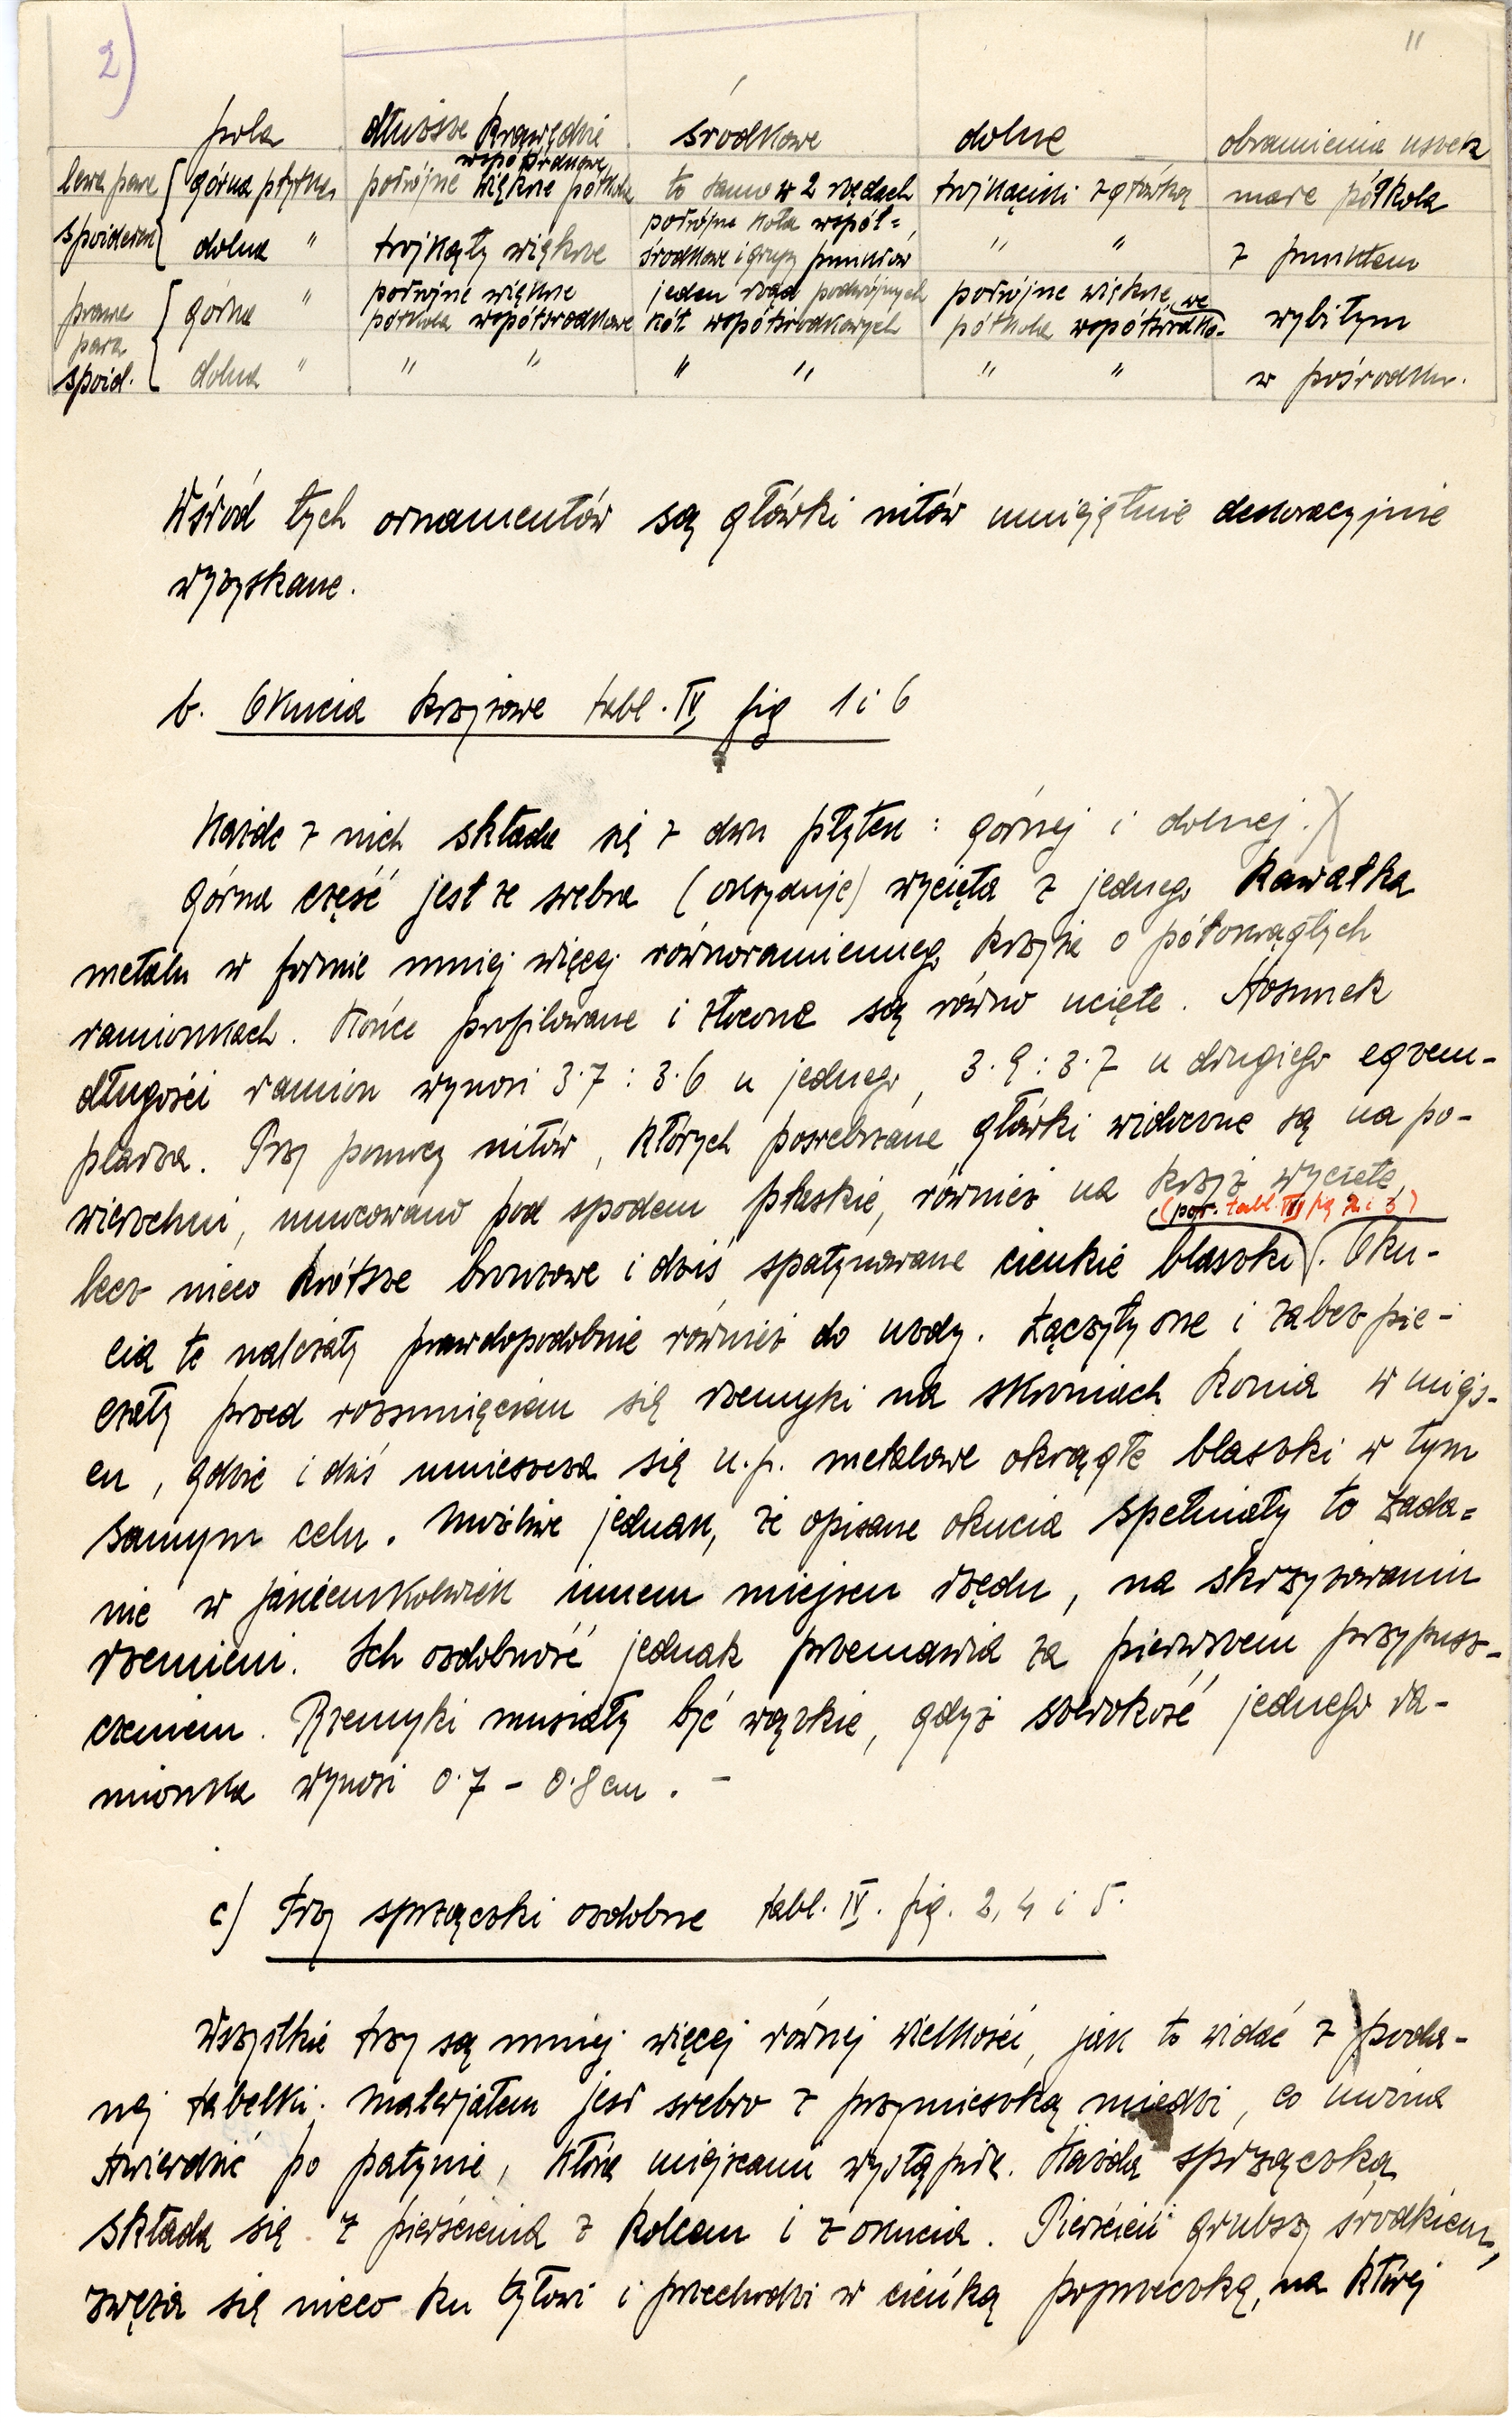 2)
"
pola dłuższe krawędzie środkowe dolne obramienia uszek
lewa para górna płytka potrójne współśrodkowe większe półkola to samo w 2 rzędach trójkąciki z główką małe półkola
spoideł dolna " trójkąty większe potrójne koła współ= środkowe i grupy punktów " " z punktem
prawa para górna " potrójne większe półkola współśrodkowe jeden rząd podwójnych kół współśrodkowych potrójne większe półkola współśrodko-we wybitym
spoid. dolna " " " " " " " w pośrodku.
Wśród tych ornamentów są główki nitów umiejętnie dekoracyjnie
wyzyskane.
b. Okucia krzyżowe tabl. IV fig 1 i 6
Każde z nich składa się z dwu płytek : górnej i dolnej.
Górna część jest ze srebra (oksyduje) wycięta z jednego kawałka
metalu w formie mniej więcej równoramiennego krzyża o półokrągłych
ramionkach. Końce profilowane i złocone są równo ucięte. Stosunek
długości ramion wynosi 3.7 : 3.6 u jednego, 3.9 : 3.7 u drugiego egzem-
plarza. Przy pomocy nitów, których posrebrzane główki widoczne są na po-
wierzchni, umocowano pod spodem płaskie, również na krzyż wycięte,
(por. tabl. III fig 2 i 3)
lecz nieco krótsze bronzowe i dziś spatynowane cienkie blaszki. Oku-
cia te należały prawdopodobnie również do uzdy. Łączyły one i zabezpie-
czały przed rozsunięciem się rzemyki na skroniach konia w miejs-
cu, gdzie i dziś umieszcza się n.p. metalowe okrągłe blaszki w tym
samym celu. Możliwe jednak, że opisane okucia spełniały to zada=
nie w jakiemkolwiek innem miejscu rzędu, na skrzyżowaniu
rzemieni. Ich ozdobność jednak przemawia za pierwszem przypusz-
czeniem. Rzemyki musiały być wązkie, gdyż szerokość jednego ra-
mionka wynosi 0.7 - 0.8 cm. -
c) Trzy sprzączki ozdobne tabl. IV. fig. 2, 4 i 5.
Wszystkie trzy są mniej więcej równej wielkości, jak to widać z poda-
nej tabelki. Materjałem jest srebro z przymieszką miedzi, co można
stwierdzić po patynie, która miejscami wystąpiła. Każda sprzączka
składa się z pierścienia z kolcem i z okucia. Pierścień grubszy środkiem,
zwęża się nieco ku tyłowi i przechodzi w cieńką poprzeczkę, na której